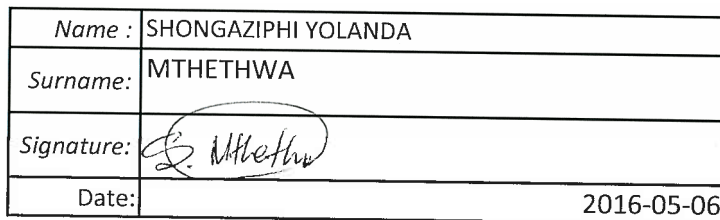 Name : SHONGAZIPHI YOLANDA
Surname: MTHETHWA
Signature: S. Mthethw
Date: 2016-05-06